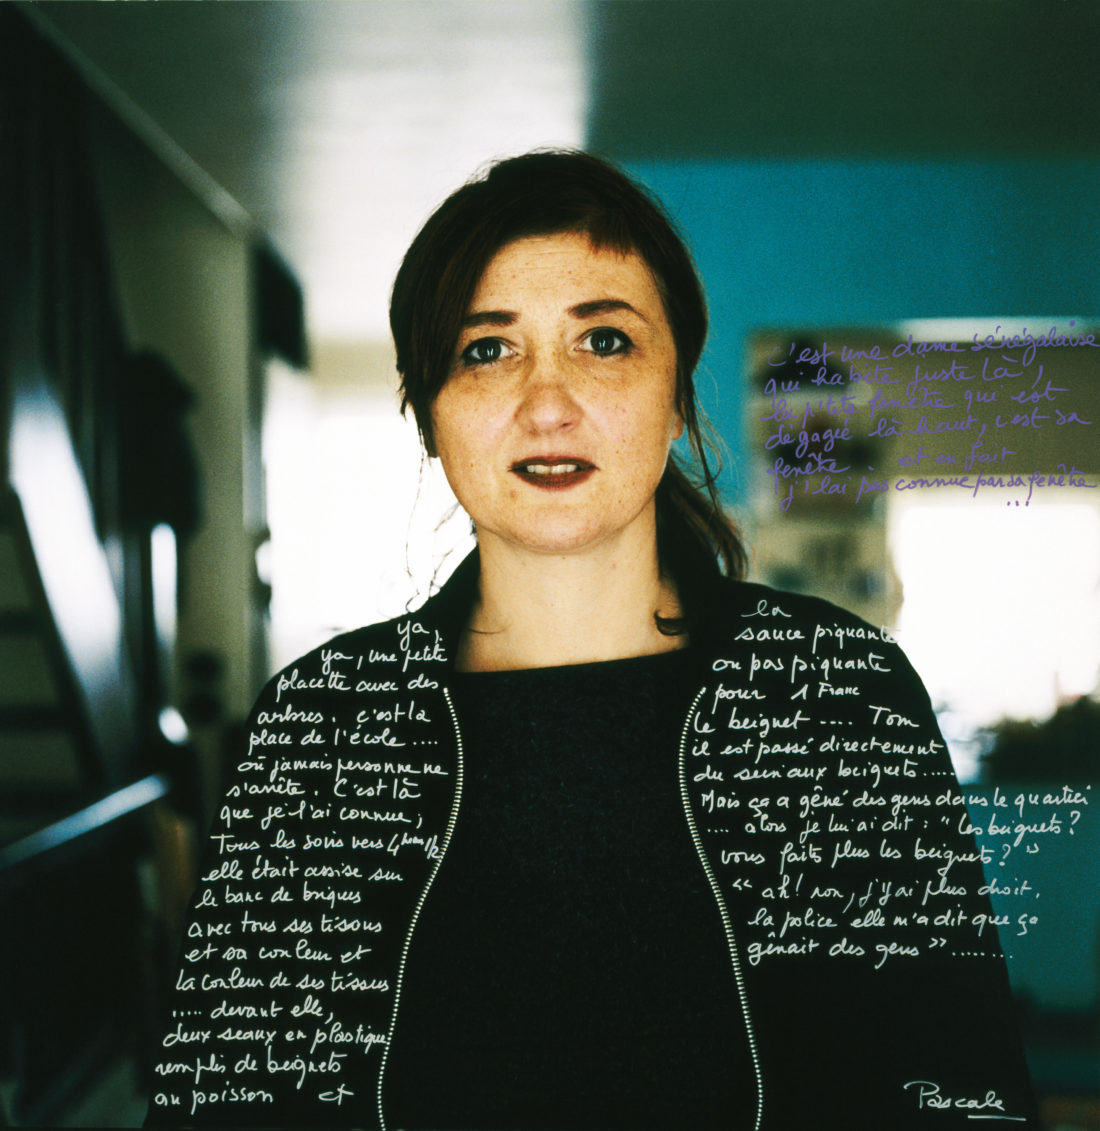 c'est une dame sénégalaise
qui habite juste là,
la p'tite fenêtre qui est
dégagée là haut, c'est sa
fenêtre et en fait
j'l'ai pas connue par sa fenêtre
...
ya,
ya, une petite
placette avec des
arbres. c'est la
place de l'école ....
où jamais personne ne
s'arrête. C'est là
que je l'ai connue,
Tous les soirs vers 4 heures 1/2
elle était assise sur
le banc de briques
avec tous ses tissus
et sa couleur et
la couleur de ses tissus
..... devant elle,
deux seaux en plastique
remplis de beignets
au poisson et
la
sauce piquante
ou pas piquante
pour 1 Franc
le beignet .... Tom
il est passé directement
du sein aux beignets .....
Mais ça a gêné des gens dans le quartier
.... alors je lui ai dit : " les beignets ?
vous faites plus les beignets ? "
" ah ! non, j'y ai plus droit,
la police elle m'a dit que ça
gênait des gens " .......
Pascale